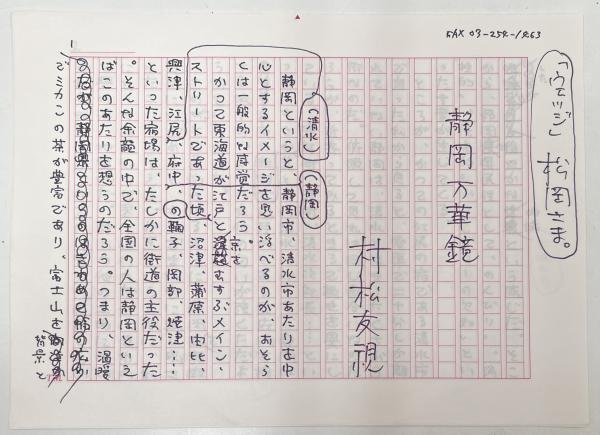 FAX 03-254-1263
「ウェッジ」松岡さま。
静岡万華鏡
村松友視
静岡というと、静岡市、清水市あたりを中
心とするイメージを思い浮べるのが、おそら
くは一般的な感覚だろう。
かつて東海道が江戸と京をむすぶメイン、
ストリートであった頃、沼津、蒲原、由比、
興津、江尻(清水)、府中(静岡)、の鞠子、岡部、焼津……
といった宿場は、たしかに街道の主役だった
。そんな余韻の中で、全国の人は静岡といえ
ばこのあたりを想うのだろう。つまり、温暖
でミカンの茶が豊富であり、富士山を背景と
1